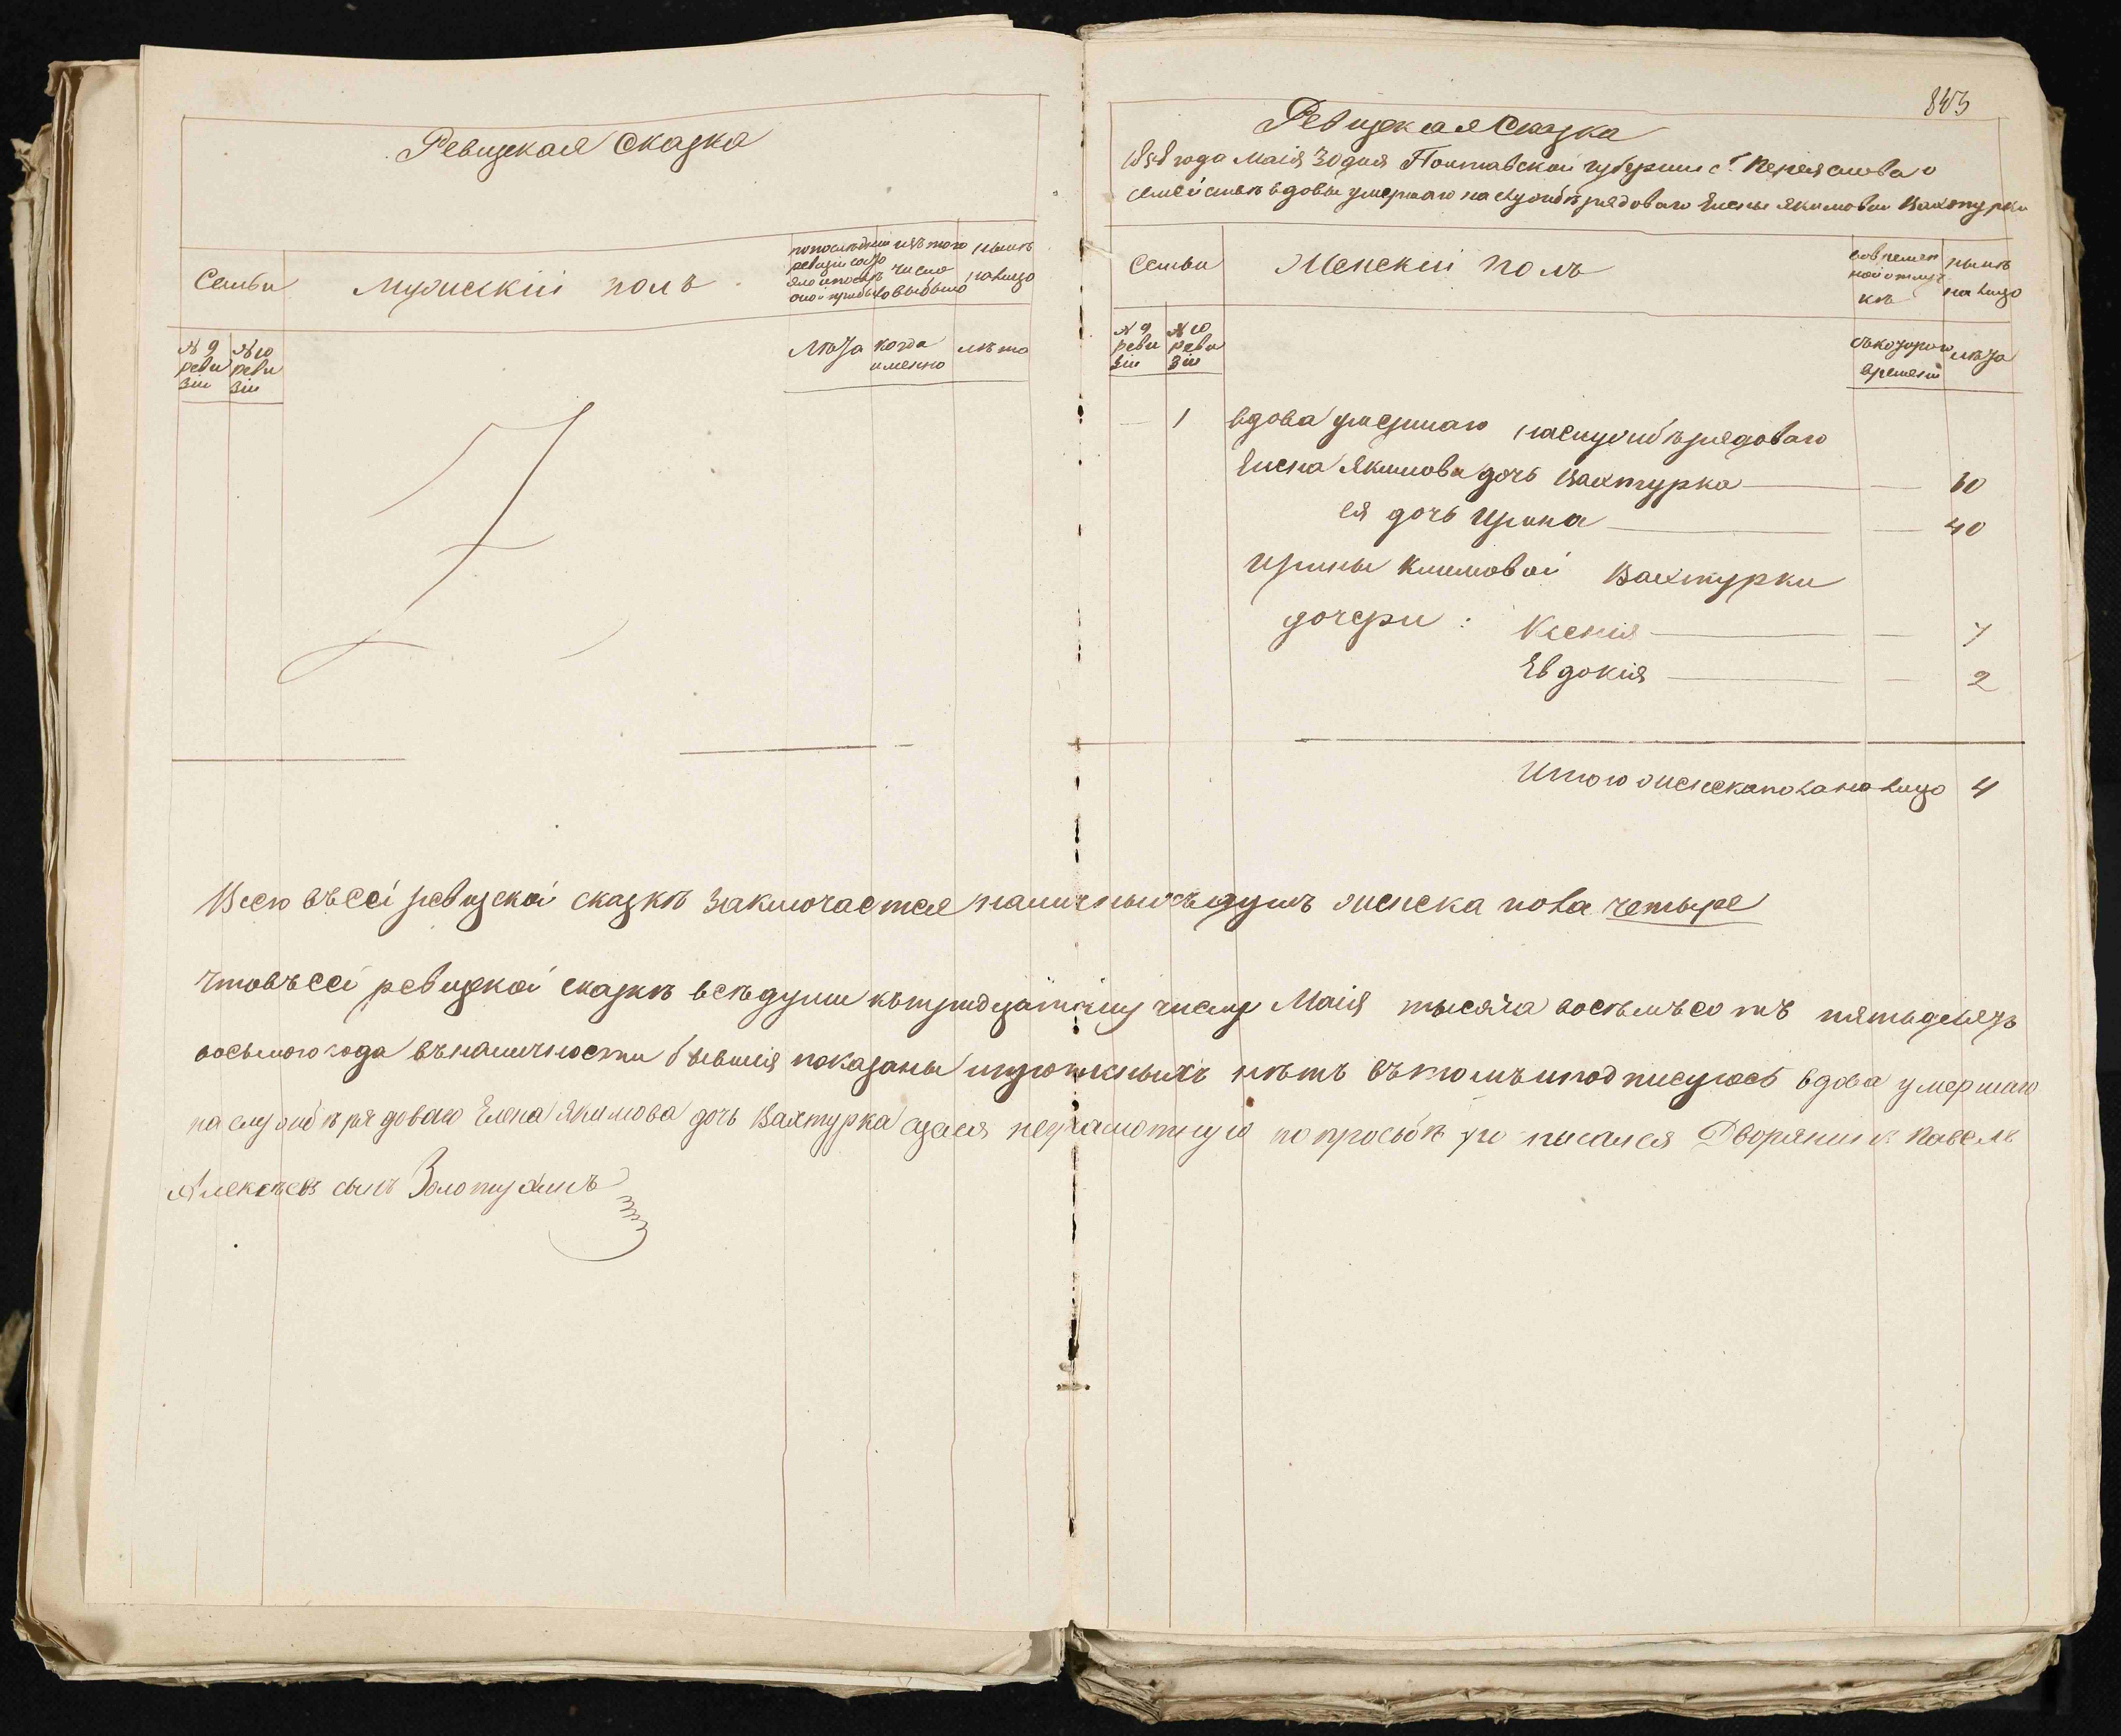 Ревизская Сказка
Семьи
Мужискій полъ
по последней ревизіи состояло и после оной прибыло
изъ того числа выбыло
нынѣ налицо
№ 9 реви зіи
№ 10 реви зіи
Лѣта
когда именно
лѣта
843
Ревизская Сказка
1858 года Маія 30 дня Полтавской губерніи г. Переяслова о
семействѣ вдовы умершаго на службѣ рядоваго Елены Якимовои Вахтурки
Семьи
Женскій полъ
во времен ной отлуч кѣ
нынѣ на лицо
№ 9 реви зіи
№ 10 реви зіи
съ котораго времени
лѣта
— 1 вдова умершаго на службѣ рядоваго
Елена Якимова дочь Вахтурка — — 60
ея дочь Ирина — — 40
Ирины Климовой Вахтурки
дочери : Ксенія — — 7
Евдокія — — 2
Итого женска пола на лицо 4
Всего въ сей ревизской сказкѣ заключается наличныхъ душъ женска пола четыре
Что въ сей ревизкой сказкѣ всѣ души къ тридцатому числу Маія тысяча восемьсотъ пятьдесятъ
восьмого года въ наличности бывшія показаны и нѣтъ въ томъ и подписуюсь вдова умершаго
на службѣ рядоваго Елена Якимова дочь Вахтурка а за нея неграмотную по просьбѣ ро писался Дворянинъ Павелъ
Алексѣевъ сынъ Золотухинъ